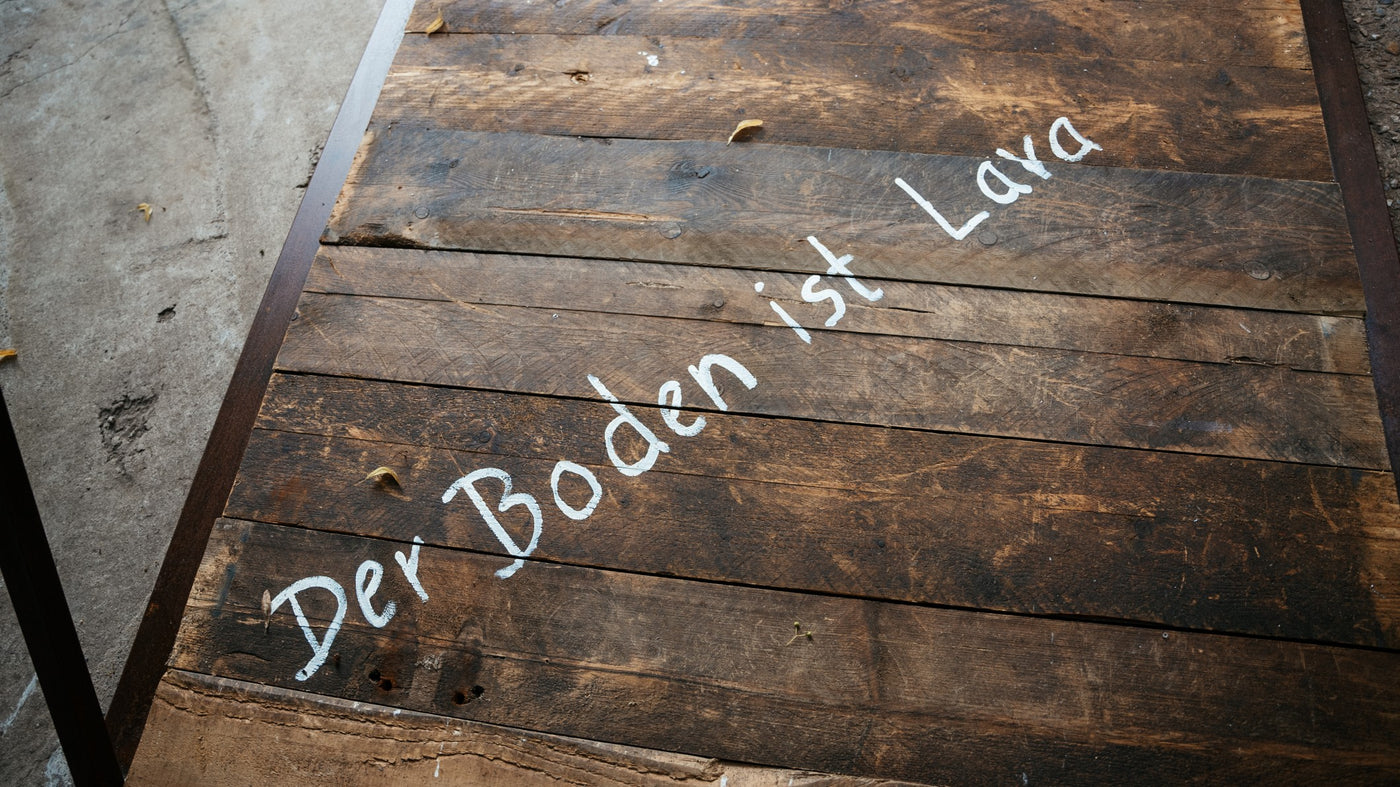 Der Boden ist Lava